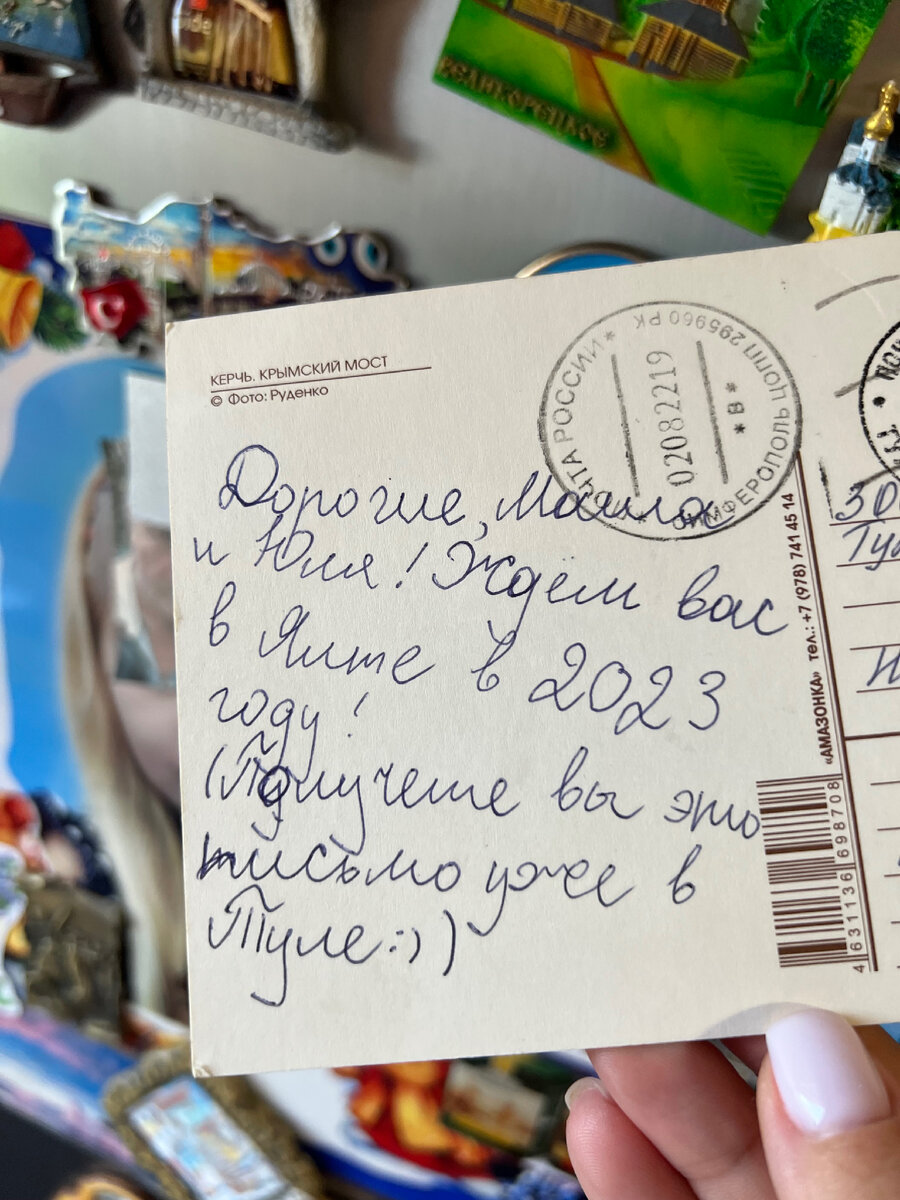 ВЕЛИКОРЕЦКОЕ
КЕРЧЬ. КРЫМСКИЙ МОСТ
© Фото: Руденко
ПОЧТА РОССИИ
02082219
* В *
СИМФЕРОПОЛЬ ЦОПП 295960 РК
Дорогие, Маша
и Юля! Ждём вас
в Ялте в 2023
году!
(Получите вы это
письмо уже в
Туле:))
«АМАЗОНКА» тел.: +7 (978) 741 45 14
4631136698708